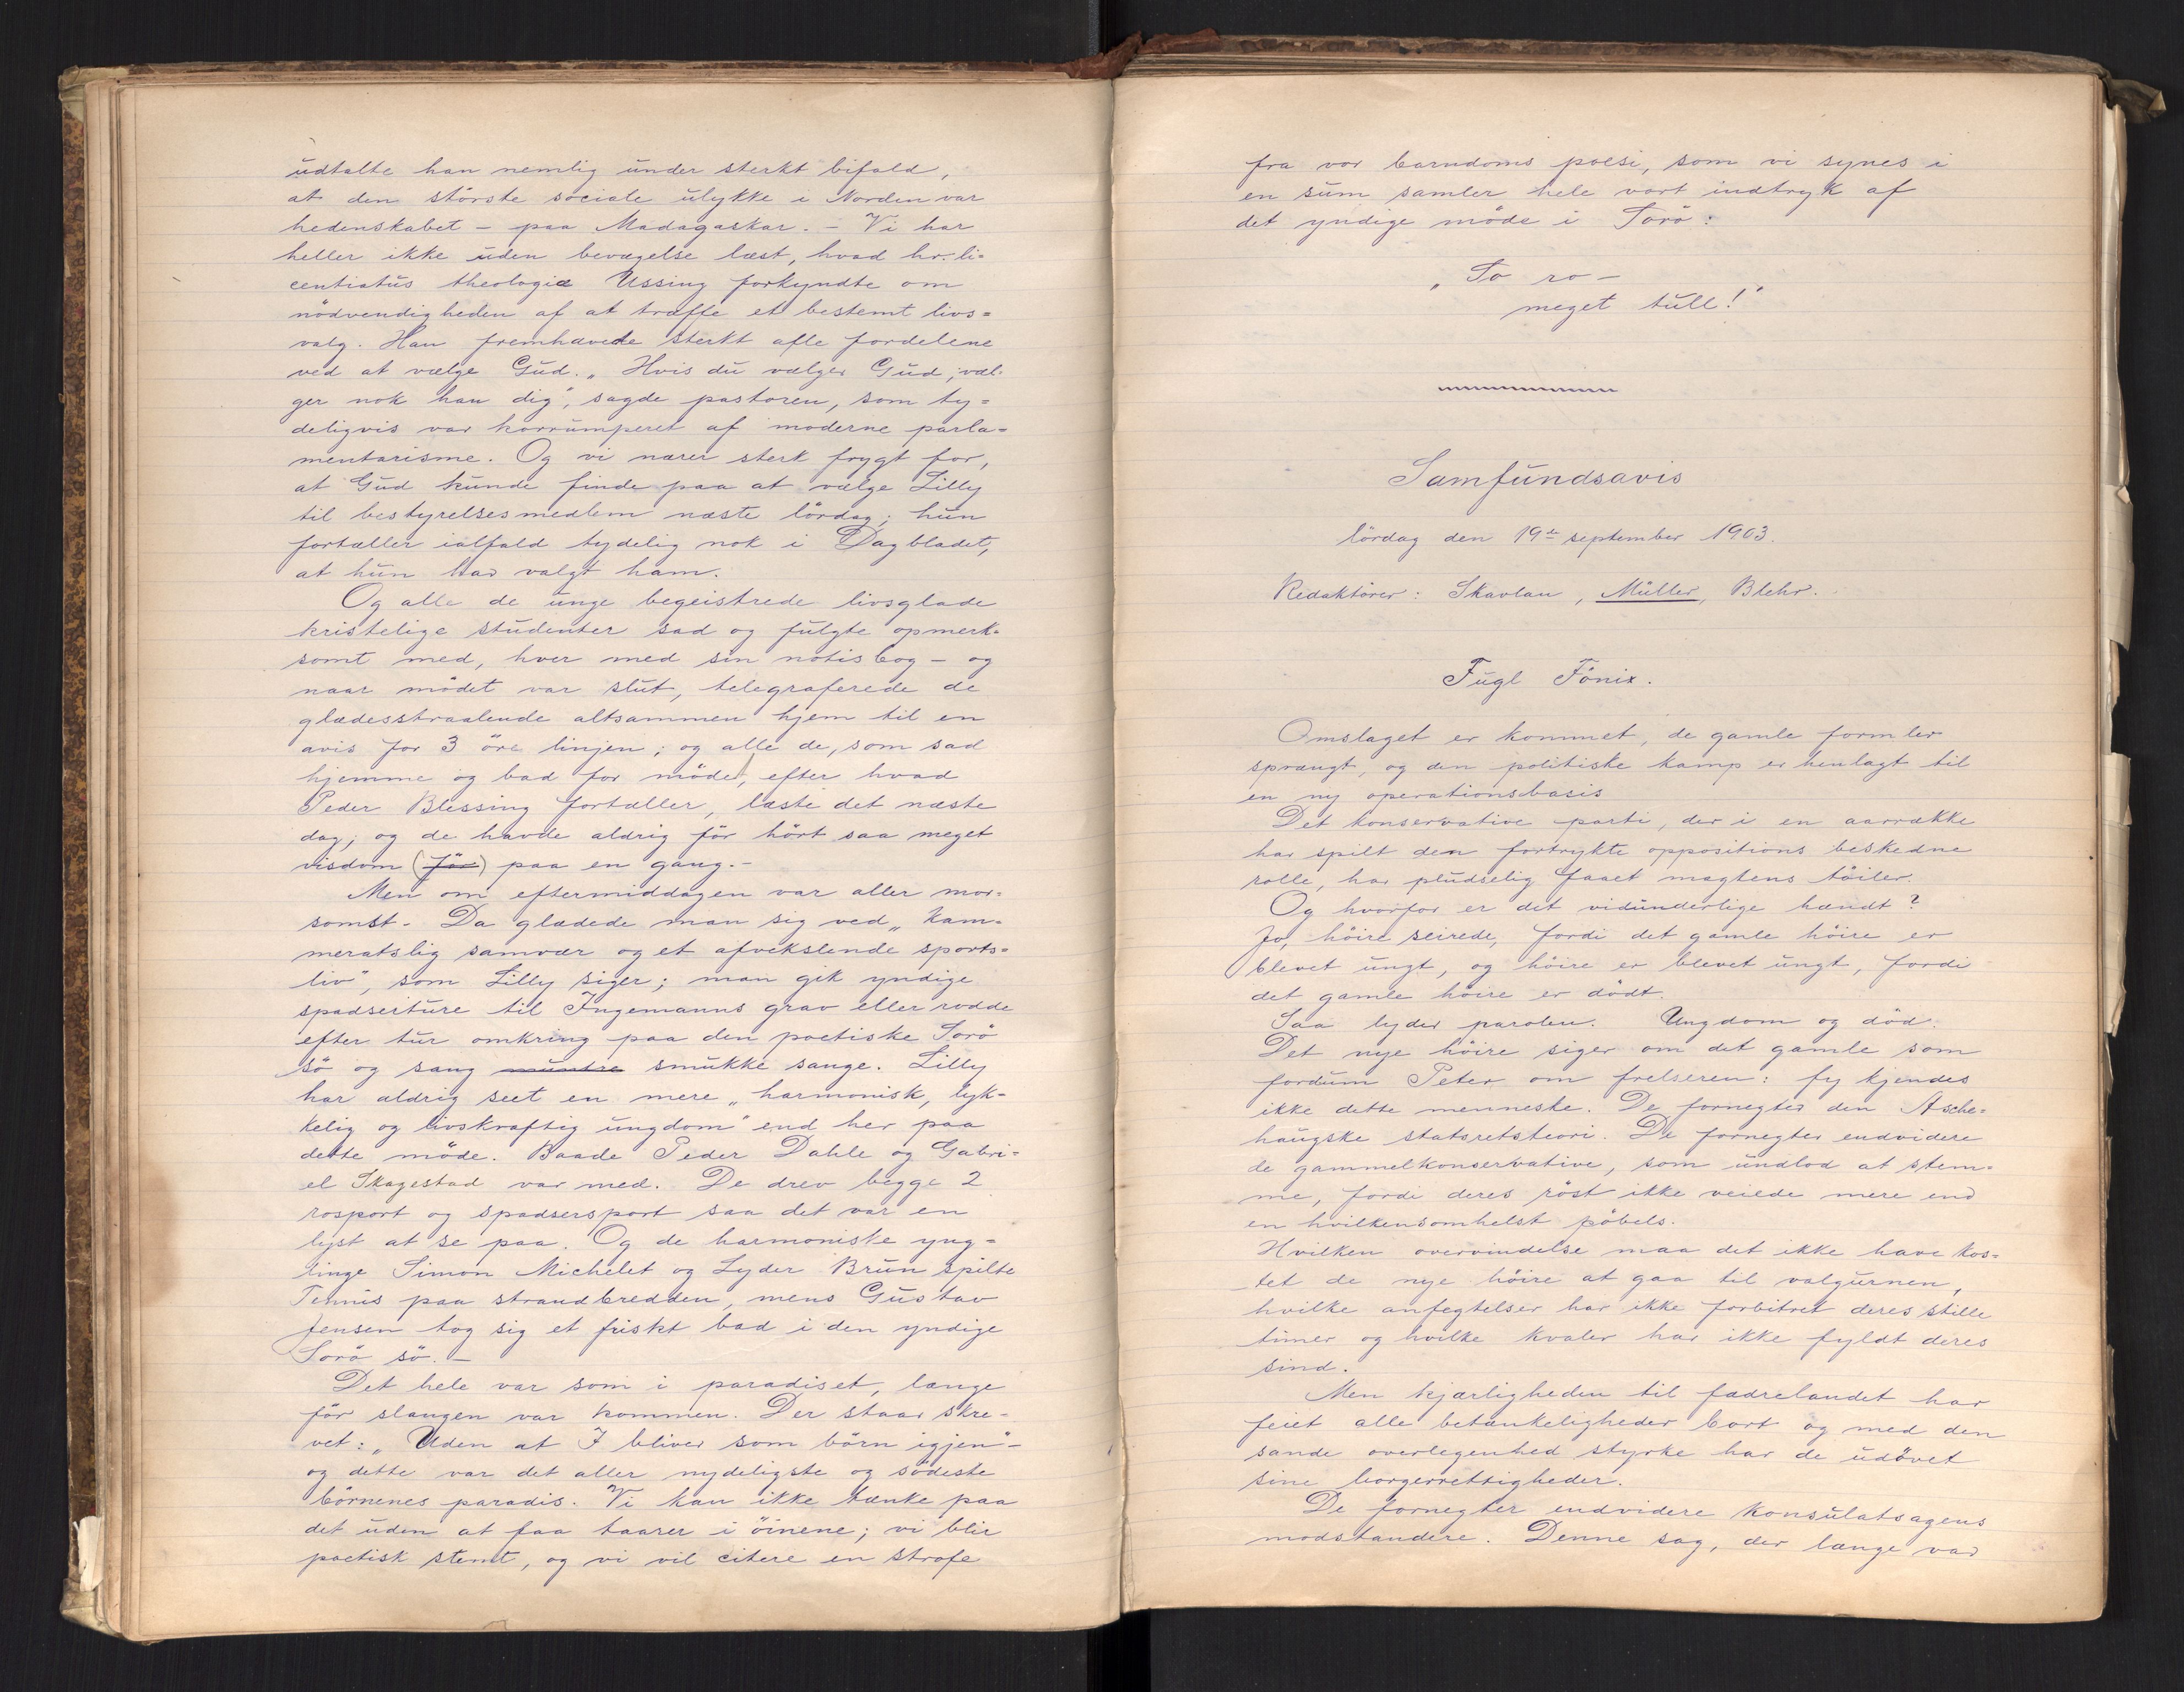 udtalte han nemlig under sterkt bifald,
at den störste sociale ulykke i Norden var
hedenskabet – paa Madagaskar. – Vi har
heller ikke uden bevægelse læst, hvad hr. li-
centiatus theologiæ Ussing forkyndte om
nödvendigheden af at træffe et bestemt livs-
valg. Han fremhævede sterkt alle fordelene
ved at vælge Gud. „Hvis du vælger Gud, væl-
ger nok han dig", sagde pastoren, som ty-
deligvis var korrumperet af moderne parla-
mentarisme. Og vi nærer sterk frygt for,
at Gud kunde finde paa at vælge Lilly
til bestyrelsesmedlem næste lördag; hun
fortæller ialfald tydelig nok i Dagbladet,
at hun har valgt ham.
Og alle de unge begeistrede livsglade
kristelige studenter sad og fulgte opmerk-
somt med, hver med sin notisbog – og
naar mödet var slut, telegraferede de
glædesstraalende altsammen hjem til en
avis for 3 öre linjen; og alle de, som sad
hjemme og bad for mödet, efter hvad
Peder Blessing fortæller, læste det næste
dag, og de havde aldrig för hört saa meget
visdom (för) paa en gang. –
Men om eftermiddagen var aller mor-
somst. Da glædede man sig ved „kam-
meratslig samvær og et afvekslende sports-
liv", som Lilly siger; man gik yndige
spadserture til Ingemanns grav eller rodde
efter tur omkring paa den poetiske Sorö
sö og sang muntre smukke sange. Lilly
har aldrig seet en mere „harmonisk, lyk-
kelig og livskraftig ungdom" end her paa
dette möde. Baade Peder Dahle og Gabri-
el Skagestad var med. De drev begge 2
rosport og spadsersport saa det var en
lyst at se paa. Og de harmoniske yng-
linge Simon Michelet og Lyder Brun spilte
Tennis paa strandbredden, mens Gustav
Jensen tog sig et friskt bad i den yndige
Sorö sö. –
Det hele var som i paradiset, længe
för slangen var kommen. Der staar skre-
vet: „Uden at I bliver som börn igjen" –
og dette var det aller nydeligste og södeste
börnenes paradis. Vi kan ikke tænke paa
det uden at faa taarer i öinene; vi blir
poetisk stemt, og vi vil citere en strofe
fra vor barndoms poesi, som vi synes i
en sum samler hele vort indtryk af
det yndige möde i Sorö:
„So ro –
meget tull!"
Samfundsavis
lördag den 19de september 1903.
Redaktörer: Skavlan, Müller, Blehr.
Fugl Fönix.
Omslaget er kommet, de gamle formler
sprængt, og den politiske kamp er henlagt til
en ny operationsbasis
Det konservative parti, der i en aarrække
har spilt den fortrykte oppositions beskedne
rolle, har pludselig faaet magtens töiler.
Og hvorfor er det vidunderlige hændt?
Jo, höire seirede, fordi det gamle höire er
blevet ungt, og höire er blevet ungt, fordi
det gamle höire er dödt.
Saa lyder parolen. Ungdom og död.
Det nye höire siger om det gamle som
fordum Peter om frelseren: jeg kjendes
ikke dette menneske. De fornegter den Asche-
haugske statsretsteori. De fornegter endvidere
de gammelkonservative, som undlod at stem-
me, fordi deres röst ikke veiede mere end
en hvilkensomhelst pöbels.
Hvilken overvindelse maa det ikke have kos-
tet de nye höire at gaa til valgurnen,
hvilke anfegtelser har ikke forbitret deres stille
timer og hvilke kvaler har ikke fyldt deres
sind.
Men kjærligheden til fædrelandet har
feiet alle betænkeligheder bort og med den
sande overlegenhed styrke har de udövet
sine borgerrettigheder.
De fornegter endvidere konsulatsagens
modstandere. Denne sag, der længe var